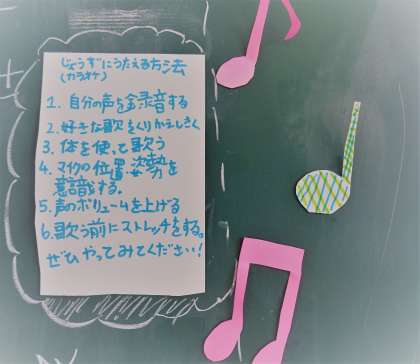 じょうずにうたえる方法
(カラオケ)
1. 自分の声を録音する
2. 好きな歌をくりかえしきく
3. 体を使って歌う
4. マイクの位置 姿勢を
意識する.
5. 声のボリュームを上げる
6. 歌う前にストレッチをする。
ぜひやってみてください!